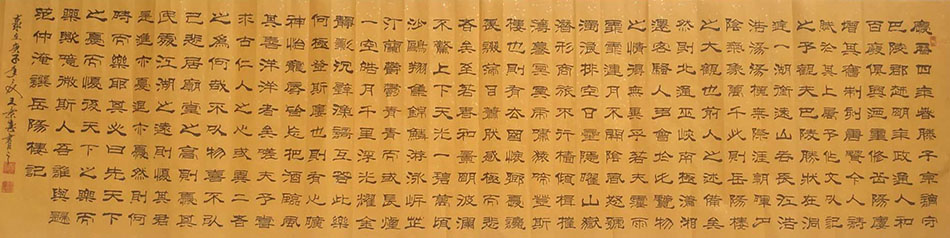 慶曆四年春滕子京謫守
巴陵郡越明年政通人和
百廢俱興迺重修岳陽樓
增其舊制刻唐賢今人詩
賦於其上屬予作文以記
之予觀夫巴陵勝狀在洞
庭一湖銜遠山吞長江浩
浩湯湯橫無際涯朝暉夕
陰氣象萬千此則岳陽樓
之大觀也前人之述備矣
然則北通巫峽南極瀟湘
遷客騷人多會於此覽物
之情得無異乎若夫霪雨
霏霏連月不開陰風怒號
濁浪排空日星隱曜山嶽
潛形商旅不行檣傾楫摧
薄暮冥冥虎嘯猿啼登斯
樓也則有去國懷鄉憂讒
畏譏滿目蕭然感極而悲
者矣至若春和景明波瀾
不驚上下天光一碧萬頃
沙鷗翔集錦鱗游泳岸芷
汀蘭郁郁青青而或長煙
一空皓月千里浮光耀金
靜影沉璧漁歌互答此樂
何極登斯樓也則有心曠
神怡寵辱皆忘把酒臨風
其喜洋洋者矣嗟夫予嘗
求古仁人之心或異二者
之為何哉不以物喜不以
己悲居廟堂之高則憂其
民處江湖之遠則憂其君
是進亦憂退亦憂然則何
時而樂耶其必曰先天下
之憂而憂後天下之樂而
樂歟噫微斯人吾誰與歸
范仲淹撰岳陽樓記
歲在庚子年